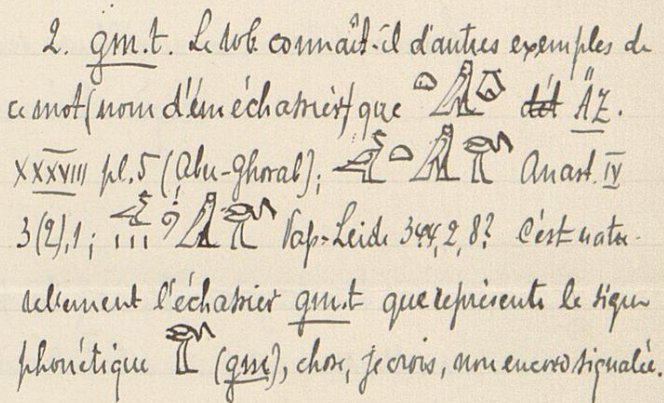 2. gm.t. Le Wb. connaît-il d'autres exemples de
ce mot (nom d'un échassier) que ÄZ.
XXXVIII pl. 5 (Abu-Ghorab); Anast. IV
3(2),1; Pap. Leide 344, 2, 8? C'est natu-
rellement l'échassier gm.t que représente le signe
phonétique (gm), chose, je crois, non encore signalée.